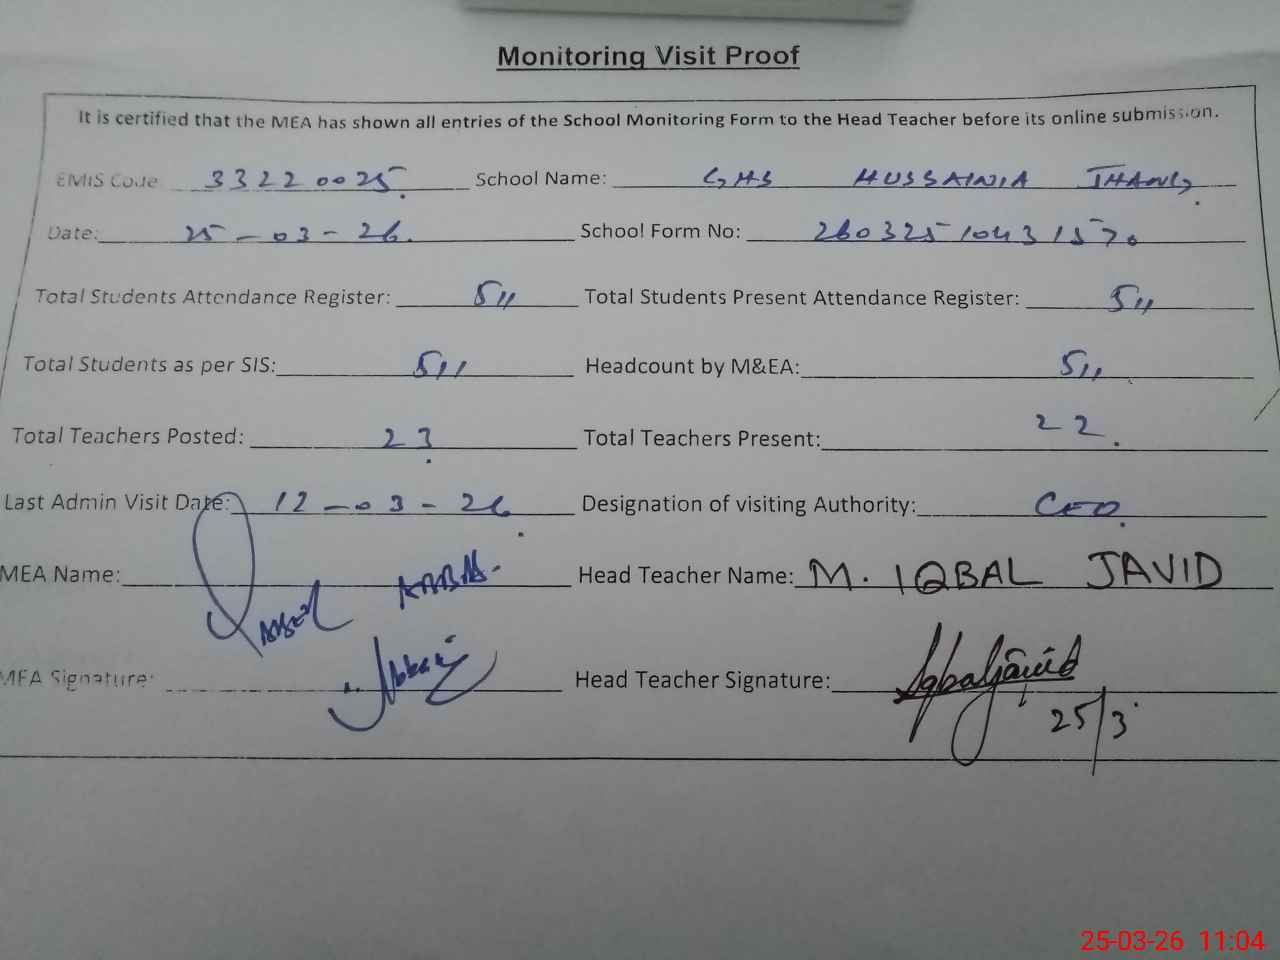 Monitoring Visit Proof
It is certified that the MEA has shown all entries of the School Monitoring Form to the Head Teacher before its online submission.
EMIS Code 33220025. School Name: GHS HUSSAINIA JHANG.
Date: 25-03-26. School Form No: 2603251043157.
Total Students Attendance Register: 511 Total Students Present Attendance Register: 511
Total Students as per SIS: 511 Headcount by M&EA: 511
Total Teachers Posted: 23. Total Teachers Present: 22.
Last Admin Visit Date: 12-03-26. Designation of visiting Authority: CEO.
MEA Name: Head Teacher Name: M. IQBAL JAVID
MEA Signature: Head Teacher Signature: Iqbaljavid
25/3
25-03-26 11:04